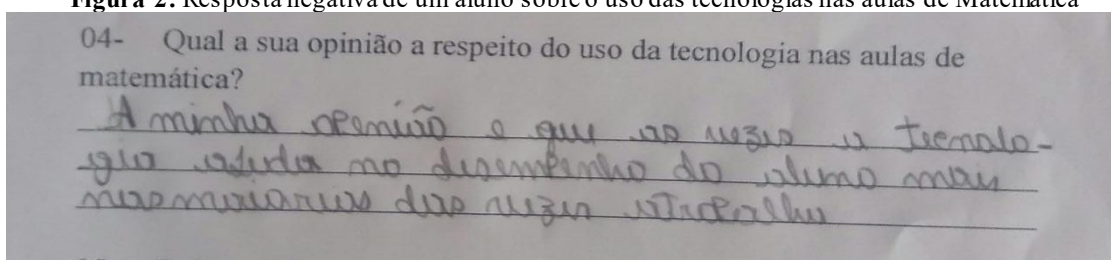 Figura 2: Resposta negativa de um aluno sobre o uso das tecnologias nas aulas de Matemática
04- Qual a sua opinião a respeito do uso da tecnologia nas aulas de
matemática?
A minha openião e que as vezes a tecnolo-
gia ajuda no desempenho do aluno mais
nas maiorias das vezes atrapalha